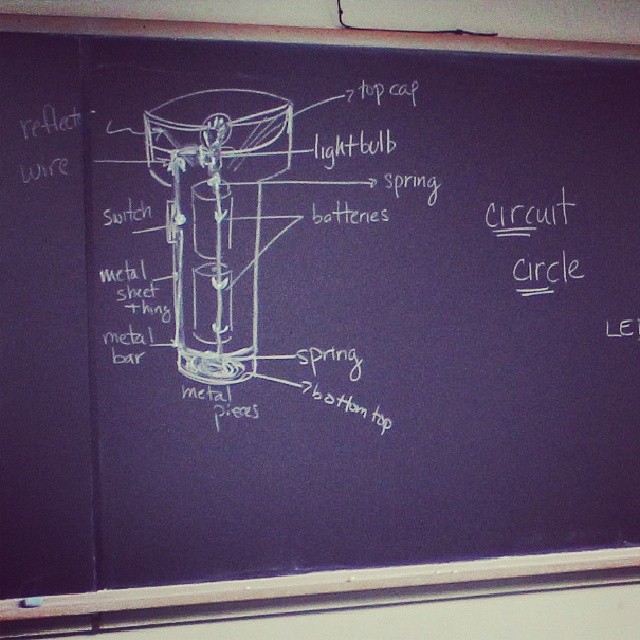 top cap
reflect
lightbulb
wire
spring
switch
batteries
circuit
circle
metal
sheet
thing
metal
bar
spring
metal
pieces
bottom top
LED